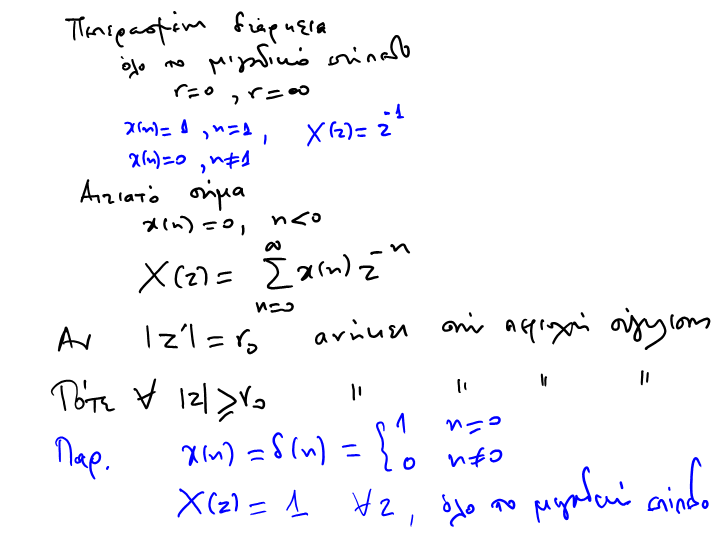 Πεπερασμένη διάρκεια
όλο το μιγαδικό επίπεδο
r=0 , r=∞
x(n)= 1 , n=1 , X(z)= z⁻¹
x(n)=0 , n≠1
Αιτιατό σήμα
x(n) =0, n<0
X(z) = ∑_{n=0}^{∞} x(n) z^{-n}
Αν |z'| = r₀ ανήκει στην περιοχή σύγκλισης
Τότε ∀ |z| ≥ r₀ " " " "
Παρ. x(n) = δ(n) = { 1 n=0
0 n≠0
X(z) = 1 ∀z , όλο το μιγαδικό επίπεδο